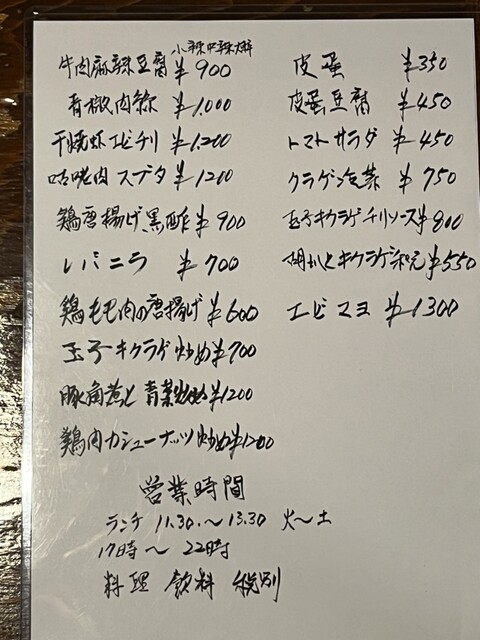 小辣中辣大辣
牛肉麻辣豆腐 ¥900
青椒肉絲 ¥1,000
干焼蝦エビチリ ¥1200
咕咾肉スブタ ¥1200
鶏唐揚げ黒酢 ¥900
レバニラ ¥700
鶏もも肉の唐揚げ ¥600
玉子キクラゲ炒め ¥700
豚角煮と青菜炒め ¥1200
鶏肉カシューナッツ炒め ¥1200
皮蛋 ¥350
皮蛋豆腐 ¥450
トマトサラダ ¥450
クラゲ冷菜 ¥750
玉子キクラゲチリソース ¥800
胡瓜とキクラゲ和え ¥550
エビマヨ ¥1300
営業時間
ランチ 11.30.〜13.30 火〜土
17時〜22時
料理 飲料 税別